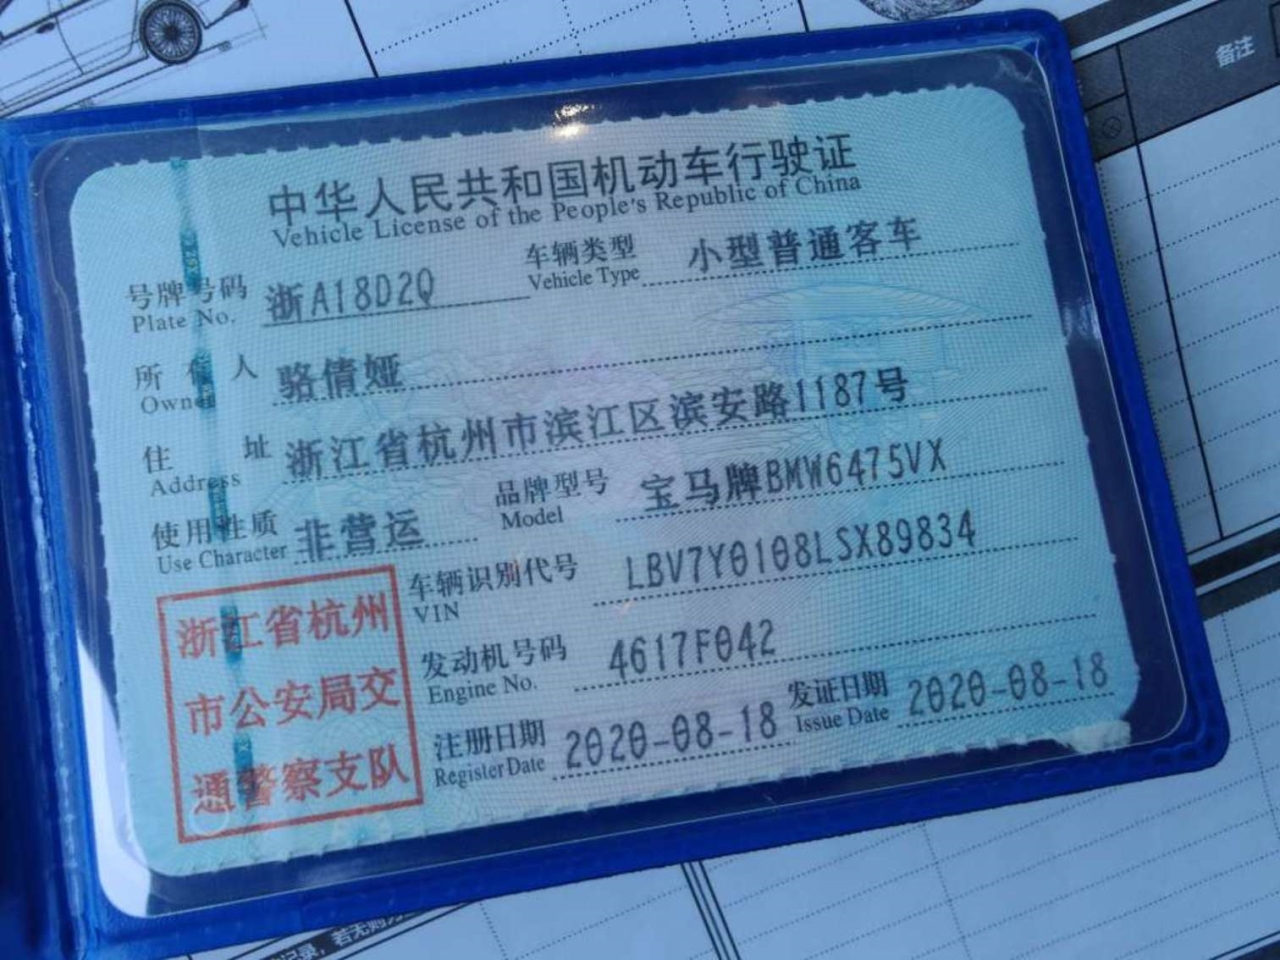 备注
中华人民共和国机动车行驶证
Vehicle License of the People's Republic of China
号牌号码 浙A18D2Q 车辆类型 小型普通客车
Plate No. Vehicle Type
所有人 骆倩娅
Owner
住址 浙江省杭州市滨江区滨安路1187号
Address
使用性质 非营运 品牌型号 宝马牌BMW6475VX
Use Character Model
车辆识别代号 LBV7Y0108LSX89834
VIN
发动机号码 4617F042
Engine No.
注册日期 2020-08-18 发证日期 2020-08-18
Register Date Issue Date
浙江省杭州
市公安局交
通警察支队